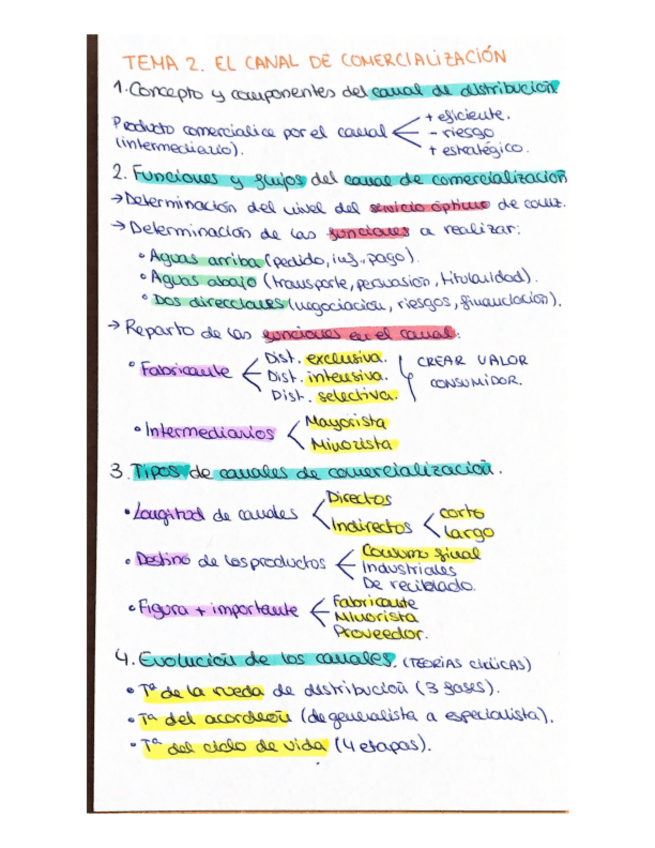 TEMA 2. EL CANAL DE COMERCIALIZACIÓN
1. Concepto y componentes del canal de distribución.
Producto comercialice por el canal + eficiente.
(intermediario). - riesgo
+ estratégico.
2. Funciones y flujos del canal de comercialización
→ Determinación del nivel del servicio óptimo de comz.
→ Determinación de las funciones a realizar:
• Aguas arriba (pedido, inf., pago).
• Aguas abajo (transporte, persuasión, titularidad).
• Dos direcciones (negociación, riesgos, financiación).
→ Reparto de las funciones en el canal:
• Fabricante Dist. exclusiva. CREAR VALOR
Dist. intensiva. CONSUMIDOR.
Dist. selectiva.
• Intermediarios Mayorista
Minorista
3. Tipos de canales de comercialización.
• Longitud de canales Directos
Indirectos corto
largo
• Destino de los productos Consumo final
Industriales
De reciclado.
• Figura + importante Fabricante
Minorista
Proveedor.
4. Evolución de los canales. (TEORÍAS CÍCLICAS)
• Tª de la rueda de distribución (3 fases).
• Tª del acordeón (de generalista a especialista).
• Tª del ciclo de vida (4 etapas).